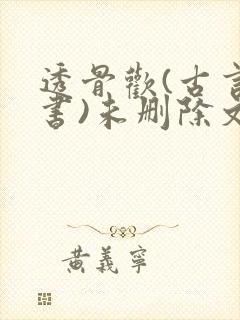 透骨歡(古言
書)未刪除文
黃義寧